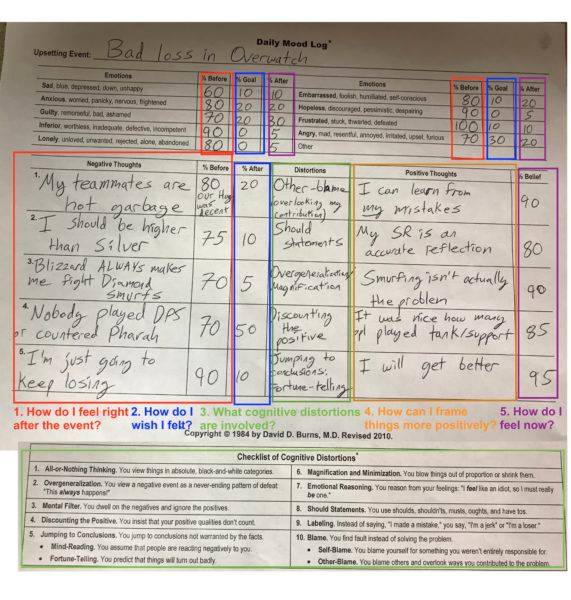 Daily Mood Log*
Upsetting Event: Bad loss in Overwatch
Emotions % Before % Goal % After
Sad, blue, depressed, down, unhappy 60 10 10
Anxious, worried, panicky, nervous, frightened 80 20 20
Guilty, remorseful, bad, ashamed 70 20 30
Inferior, worthless, inadequate, defective, incompetent 90 0 5
Lonely, unloved, unwanted, rejected, alone, abandoned 80 0 5
Emotions % Before % Goal % After
Embarrassed, foolish, humiliated, self-conscious 80 10 20
Hopeless, discouraged, pessimistic, despairing 90 0 5
Frustrated, stuck, thwarted, defeated 100 10 10
Angry, mad, resentful, annoyed, irritated, upset, furious 70 30 20
Other
Negative Thoughts % Before % After Distortions Positive Thoughts % Belief
1. My teammates are
hot garbage
80
our Hog
was
decent
20
Other-blame
(overlooking my
contribution)
I can learn from
my mistakes
90
2. I should be higher
than Silver
75
10
Should
statements
My SR is an
accurate reflection
80
3. Blizzard ALWAYS makes
me fight Diamond
smurfs
70
5
Overgeneralization/
Magnification
Smurfing isn't actually
the problem
90
4. Nobody played DPS
or countered Pharah
70
50
Discounting
the
positive
It was nice how many
ppl played tank/support
85
5. I'm just going to
keep losing
90
10
Jumping to
conclusions:
Fortune-telling
I will get better
95
1. How do I feel right
after the event?
2. How do I
wish I felt?
3. What cognitive distortions
are involved?
4. How can I frame
things more positively?
5. How do I
feel now?
Copyright © 1984 by David D. Burns, M.D. Revised 2010.
Checklist of Cognitive Distortions*
1. All-or-Nothing Thinking. You view things in absolute, black-and-white categories.
2. Overgeneralization. You view a negative event as a never-ending pattern of defeat:
"This always happens!"
3. Mental Filter. You dwell on the negatives and ignore the positives.
4. Discounting the Positive. You insist that your positive qualities don't count.
5. Jumping to Conclusions. You jump to conclusions not warranted by the facts.
• Mind-Reading. You assume that people are reacting negatively to you.
• Fortune-Telling. You predict that things will turn out badly.
6. Magnification and Minimization. You blow things out of proportion or shrink them.
7. Emotional Reasoning. You reason from your feelings: "I feel like an idiot, so I must really
be one."
8. Should Statements. You use shoulds, shouldn'ts, musts, oughts, and have tos.
9. Labeling. Instead of saying, "I made a mistake," you say, "I'm a jerk" or "I'm a loser."
10. Blame. You find fault instead of solving the problem.
• Self-Blame. You blame yourself for something you weren't entirely responsible for.
• Other-Blame. You blame others and overlook ways you contributed to the problem.